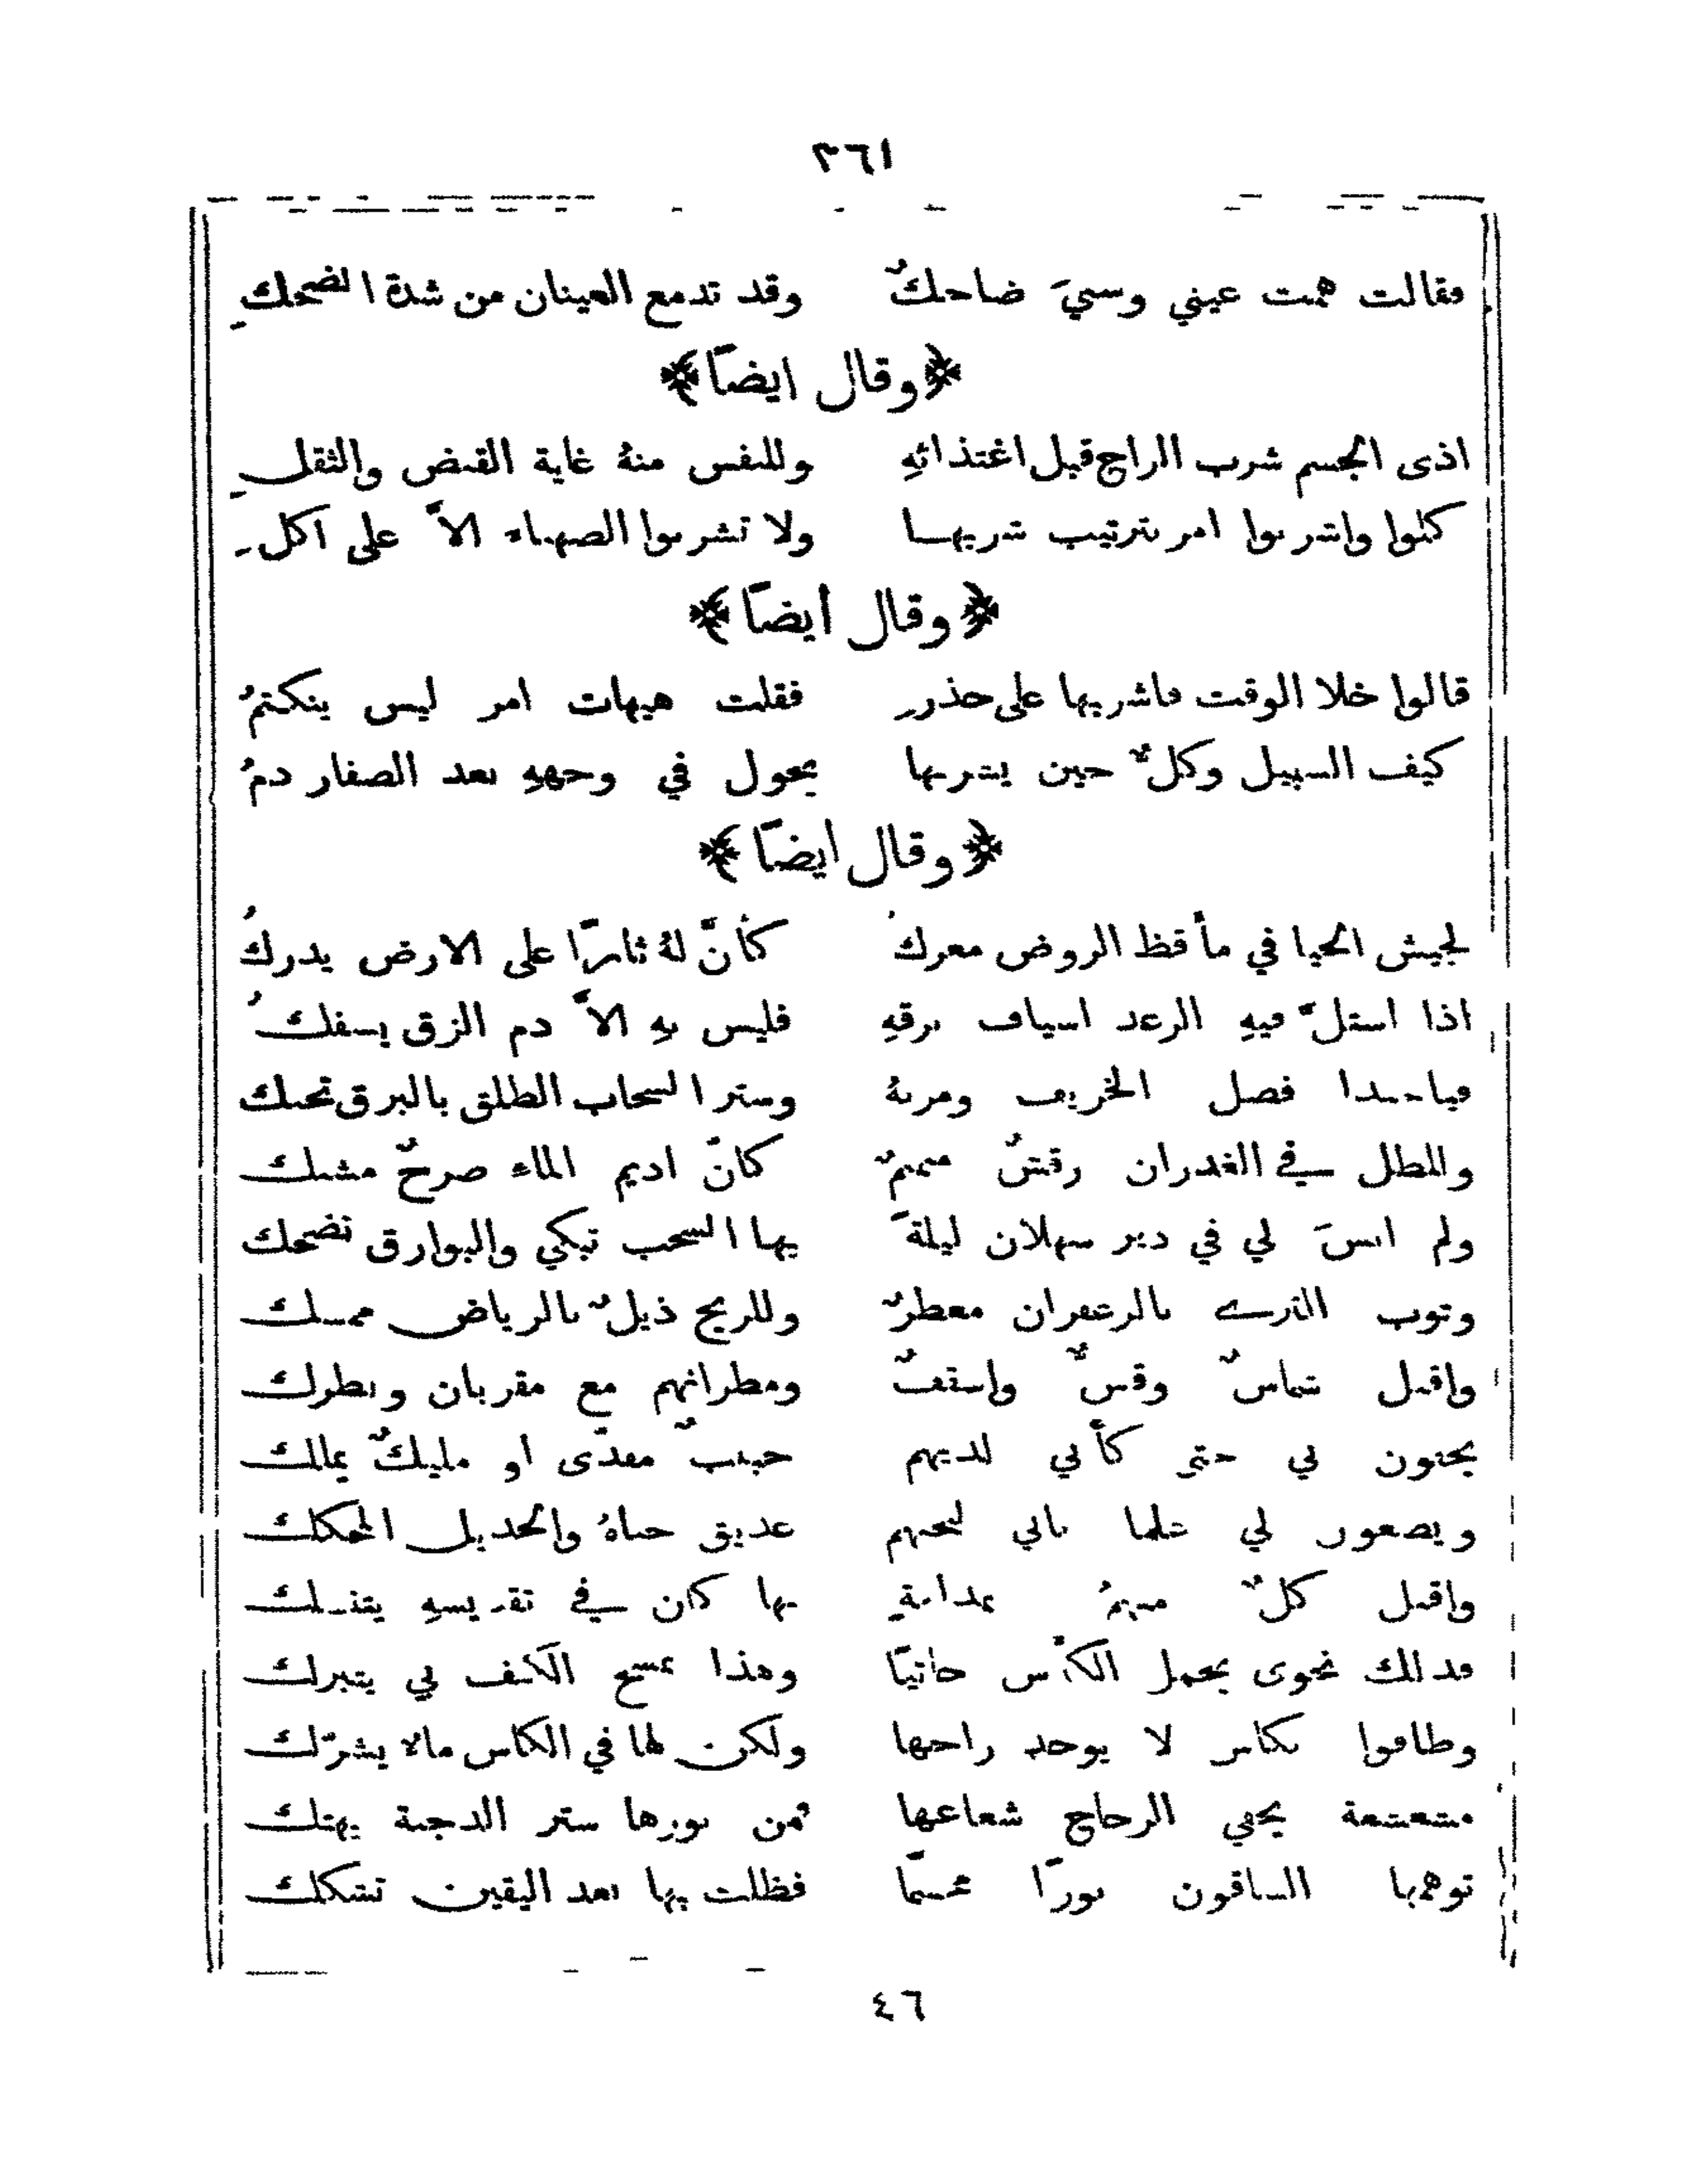 ٣٦١
فقالت همت عيني وسنيَ ضاحكٌ وقد تدمع العينان من شدة الضحكِ
﴿وقال ايضاً﴾
اذى الجسم شرب الراح قبل اغتذائهِ وللنفس منهُ غاية القبض والثقلِ
كلوا واشربوا امر بترتيب شربها ولا تشربوا الصهباء الاَّ على اكلِ
﴿وقال أيضاً﴾
قالوا خلا الوقت فاشربها على حذرٍ فقلت هيهات امر ليس ينكتمُ
كيف السبيل وكلٌّ حين يشربها يجول في وجههِ بعد الصفار دمُ
﴿وقال ايضاً﴾
لجيش الحيا في مأقظ الروض معركُ كأنَّ لهُ ثاراً على الارض يدركُ
اذا استلَّ فيهِ الرعد اسياف برقهِ فليس بهِ الاَّ دم الزق يسفكُ
فياحبذا فصل الخريف ومزنهُ وستر السحاب الطلق بالبرق تحبك
وللطل في الغدران رقشٌ منمنمٌ كانَّ اديم الماء صرحٌ مشبك
ولم انسَ لي في دير سهلان ليلةً بها السحب تبكي والبوارق تضحك
وثوب الثرى بالزعفران معطرٌ وللريح ذيلٌ بالرياض ممسك
واقبل شماسٌ وقسٌّ واسقفٌ ومطرانهم مع مقربان وبطرك
يحثون لي حتى كأني لديهم حبيبٌ مفدّى او مليكٌ يملك
ويصغون لي علما باني لبحثهم عذيق حباهُ والجذيل المحكك
واقبل كلٌّ منهمُ بمدامةٍ بها كان في تقديسهِ يتنسك
فذلك نحوى يحمل الكأس جاثياً وهذا بمسح الكف لي يتبرك
وطافوا بكاس لا يوحد راحها ولكن لها في الكاس مالا يشرّك
مشعشعة يخفي الزجاج شعاعها فمن نورها ستر الدجنة يهتك
توهمها الساقون نوراً مجسماً فظلت بها بعد اليقين تشكك
٤٦